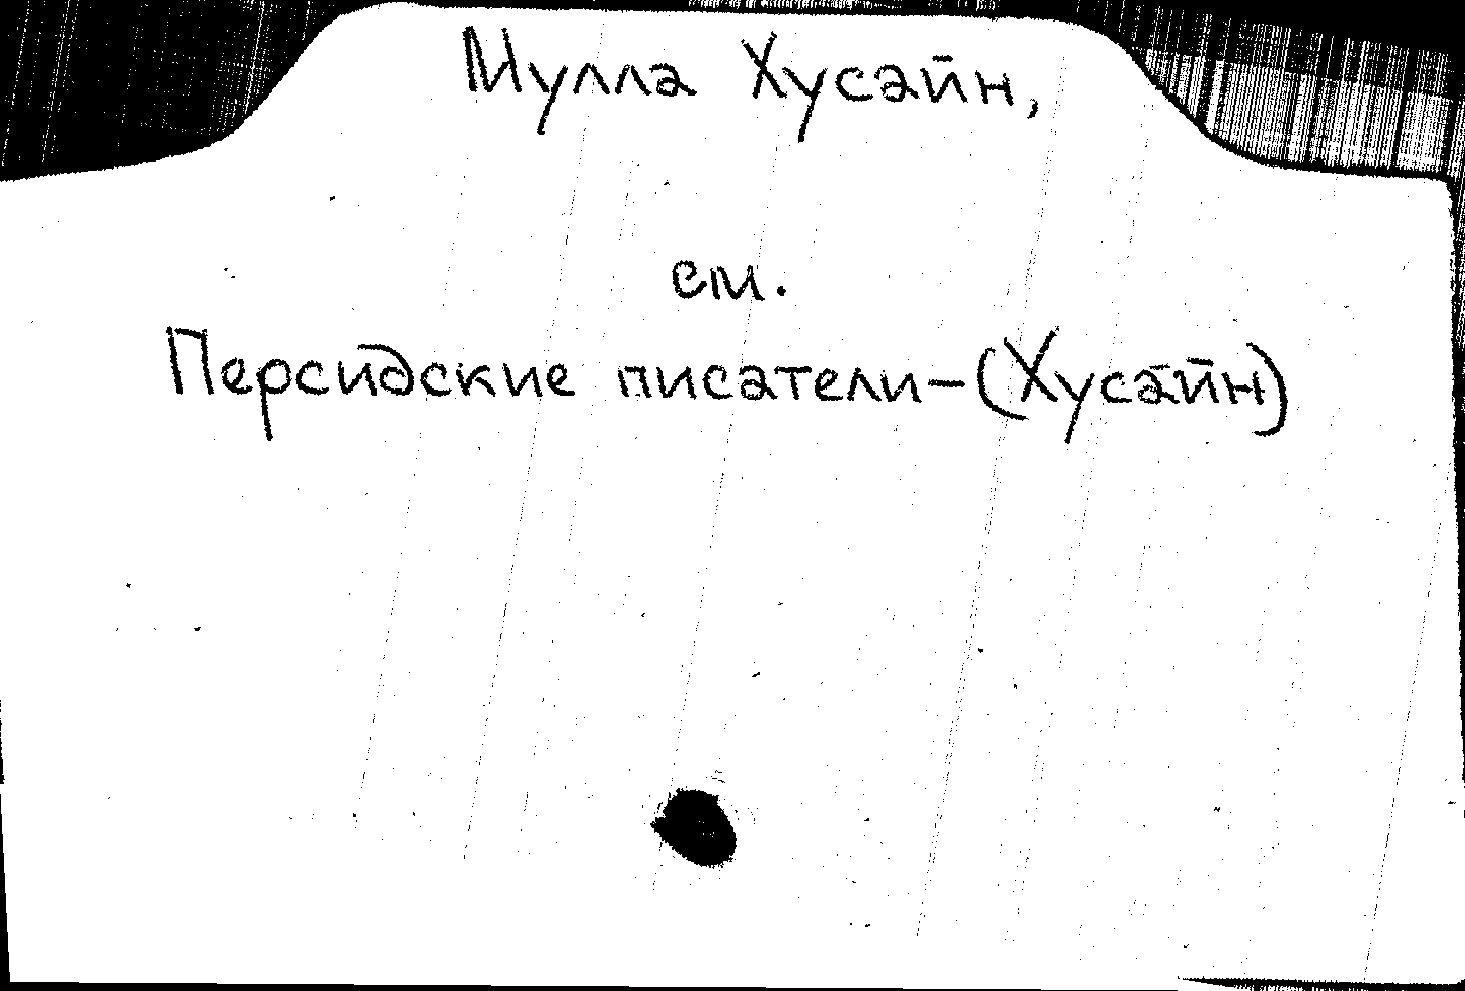 Мулла Хусайн,
см.
Персидские писатели-(Хусайн)